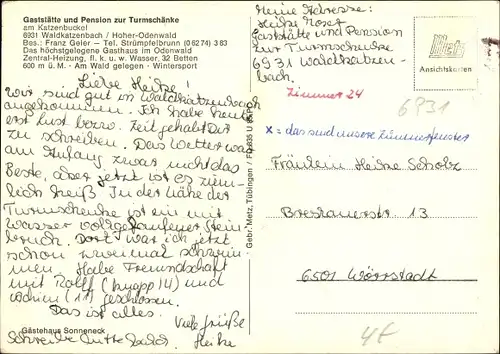 Gaststätte und Pension zur Turmschänke
am Katzenbuckel
6931 Waldkatzenbach / Hoher-Odenwald
Bes.: Franz Geier — Tel. Strümpfelbrunn (06274) 383
Das höchstgelegene Gasthaus im Odenwald
Zentral-Heizung, fl. k. u. w. Wasser, 32 Betten
600 m ü. M. · Am Wald gelegen · Wintersport
Liebe Heike!
Wir sind gut in Waldkatzenbach
angekommen. Ich habe heute
erst Lust bezw. Zeit gehabt Dir
zu schreiben. Das Wetter war
am Anfang zwar nicht das
Beste, aber jetzt ist es ziem-
lich heiß. In der Nähe der
Turmschenke ist ein mit
Wasser vollgelaufener Stein-
bruch. Dort war ich jetzt
schon zweimal schwim-
men. Habe Freundschaft
mit Rolf (knapp 14) und
Jochim (11) geschlossen.
Das ist alles.
Viele Grüße
Heike
Schreibe bitte bald!
Gästehaus Sonneneck
Gebr. Metz, Tübingen
Meine Adresse:
Heike
Gaststätte und Pension
zur Turmschenke
6931 Waldkatzen-
bach.
Zimmer 24
Metz
Ansichtskarten
6931
x = das sind unsere Zimmerfenster
Fräulein Heike Scholz
Breslauerstr. 13
6501 Wörrstadt
4€